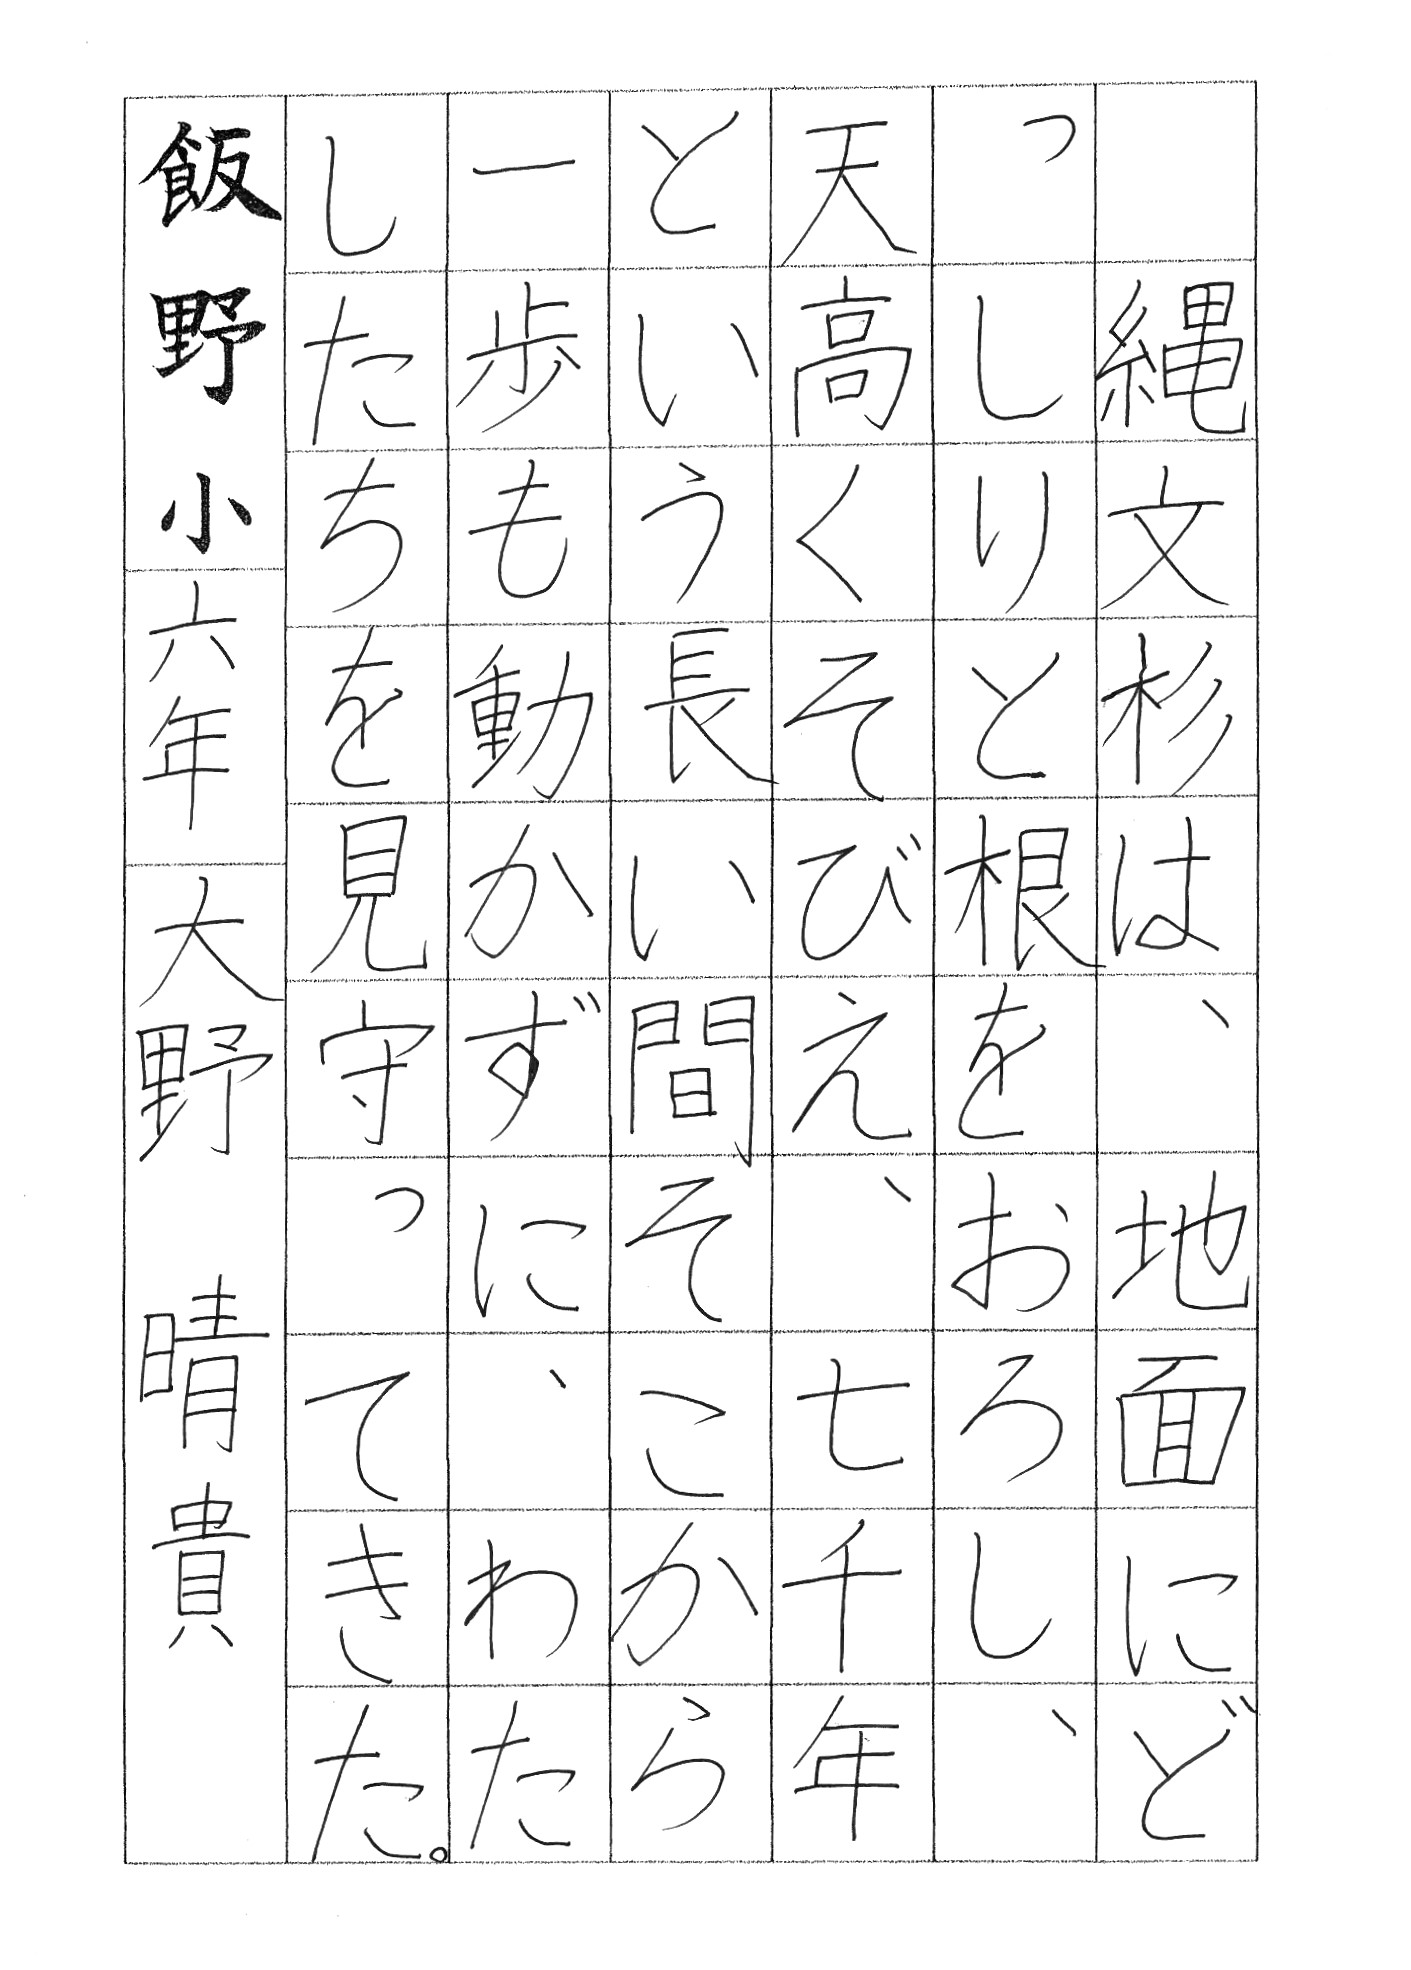 縄文杉は、地面にど
っしりと根をおろし、
天高くそびえ、七千年
という長い間そこから
一歩も動かずに、わた
したちを見守ってきた。
飯野小六年大野 晴貴